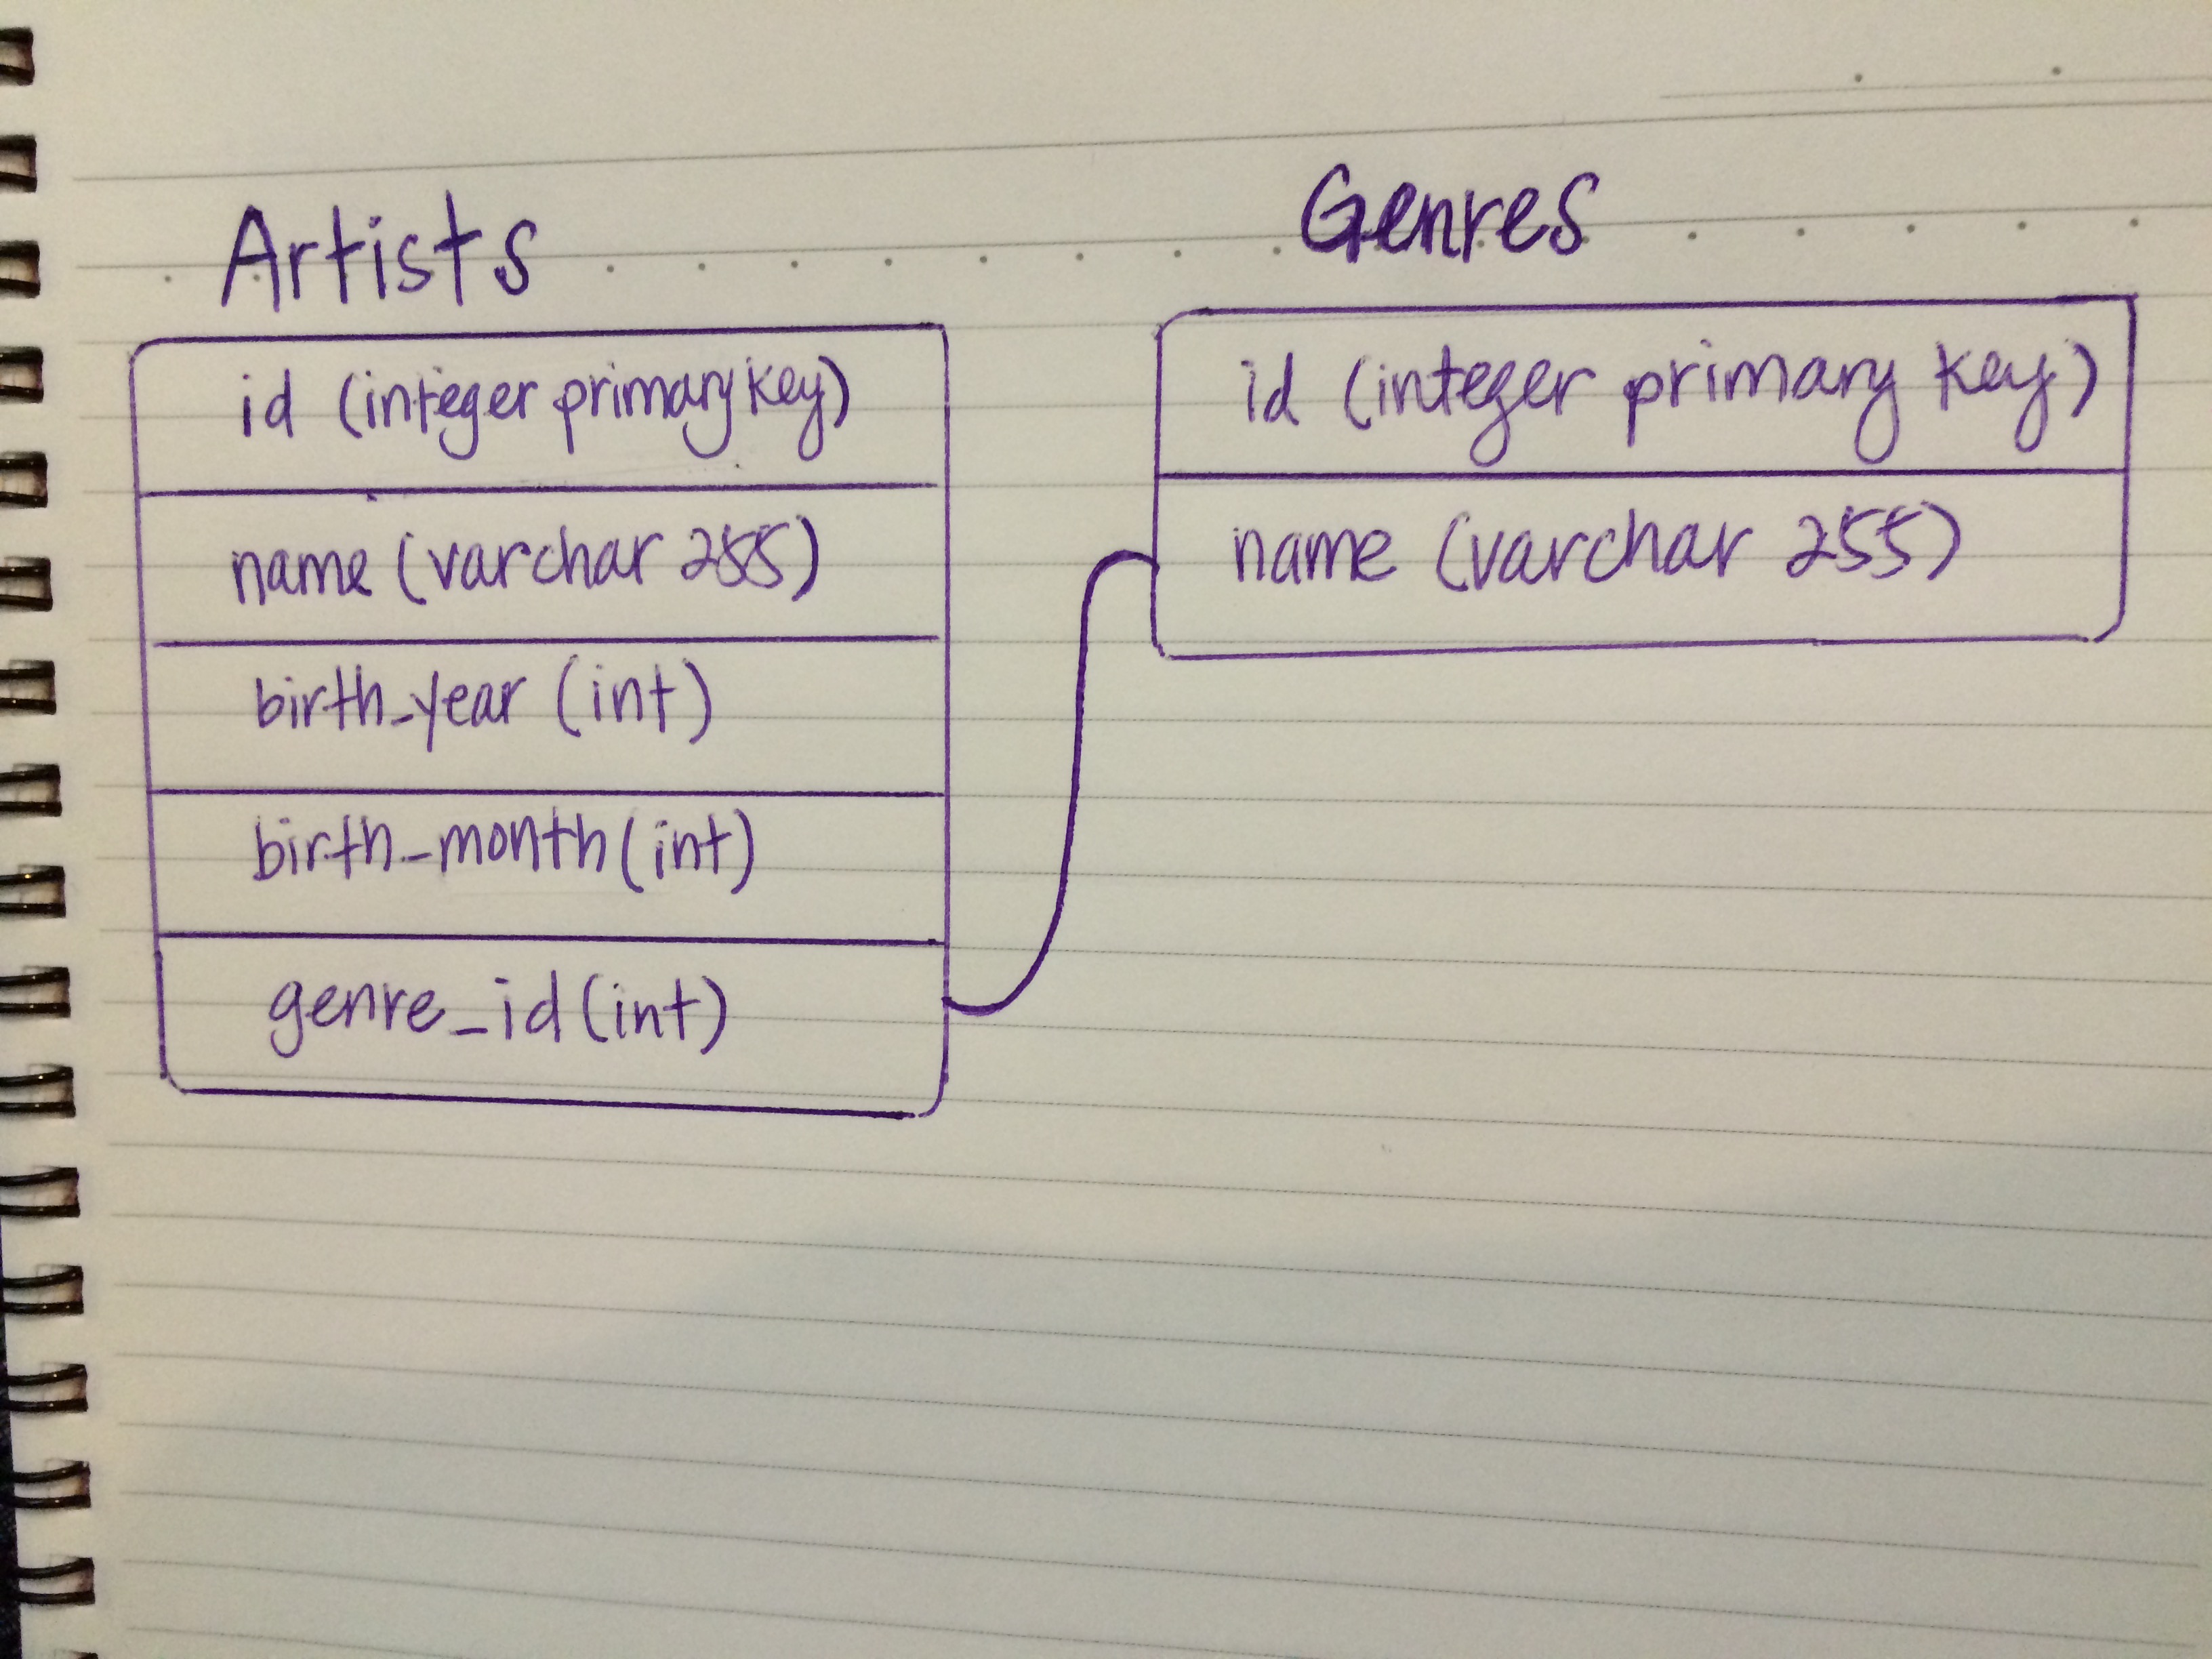 Artists
id (integer primary key)
name (varchar 255)
birth_year (int)
birth_month (int)
genre_id (int)
Genres
id (integer primary key)
name (varchar 255)